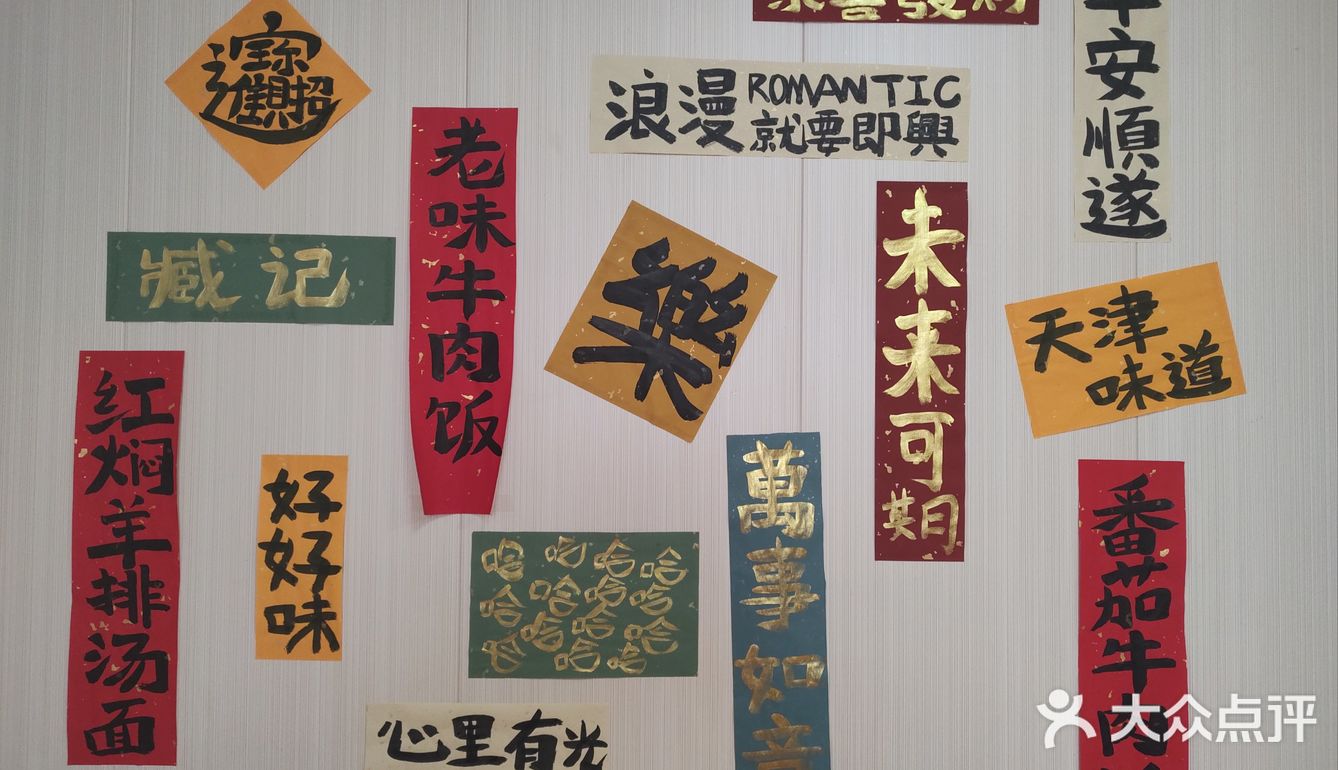 招財進寶
恭喜發財
平安順遂
浪漫 ROMANTIC
就要即興
老味牛肉饭
臧记
樂
未来可期
天津
味道
红焖羊排汤面
好好味
萬事如意
哈哈哈哈
哈哈哈
哈哈哈
哈哈哈
番茄牛肉
心里有光
大众点评